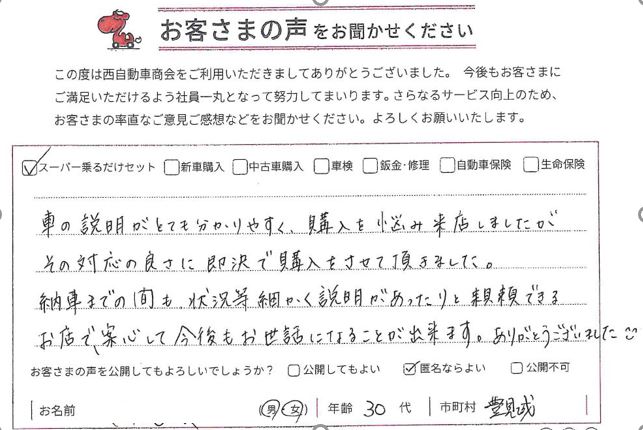 お客さまの声をお聞かせください
この度は西自動車商会をご利用いただきましてありがとうございました。 今後もお客さまに
ご満足いただけるよう社員一丸となって努力してまいります。さらなるサービス向上のため、
お客さまの率直なご意見ご感想などをお聞かせください。よろしくお願いいたします。
☑スーパー乗るだけセット □新車購入 □中古車購入 □車検 □鈑金・修理 □自動車保険 □生命保険
車の説明がとても分かりやすく、購入を悩み来店しましたが
その対応の良さに即決で購入をさせて頂きました。
納車までの間も、状況等細かく説明があったりと親頼できる
お店で、安心して今後もお世話になることが出来ます。ありがとうございました☺
お客さまの声を公開してもよろしいでしょうか? □公開してもよい ☑匿名ならよい □公開不可
お名前 男・女 年齢 30 代 市町村 豊見城